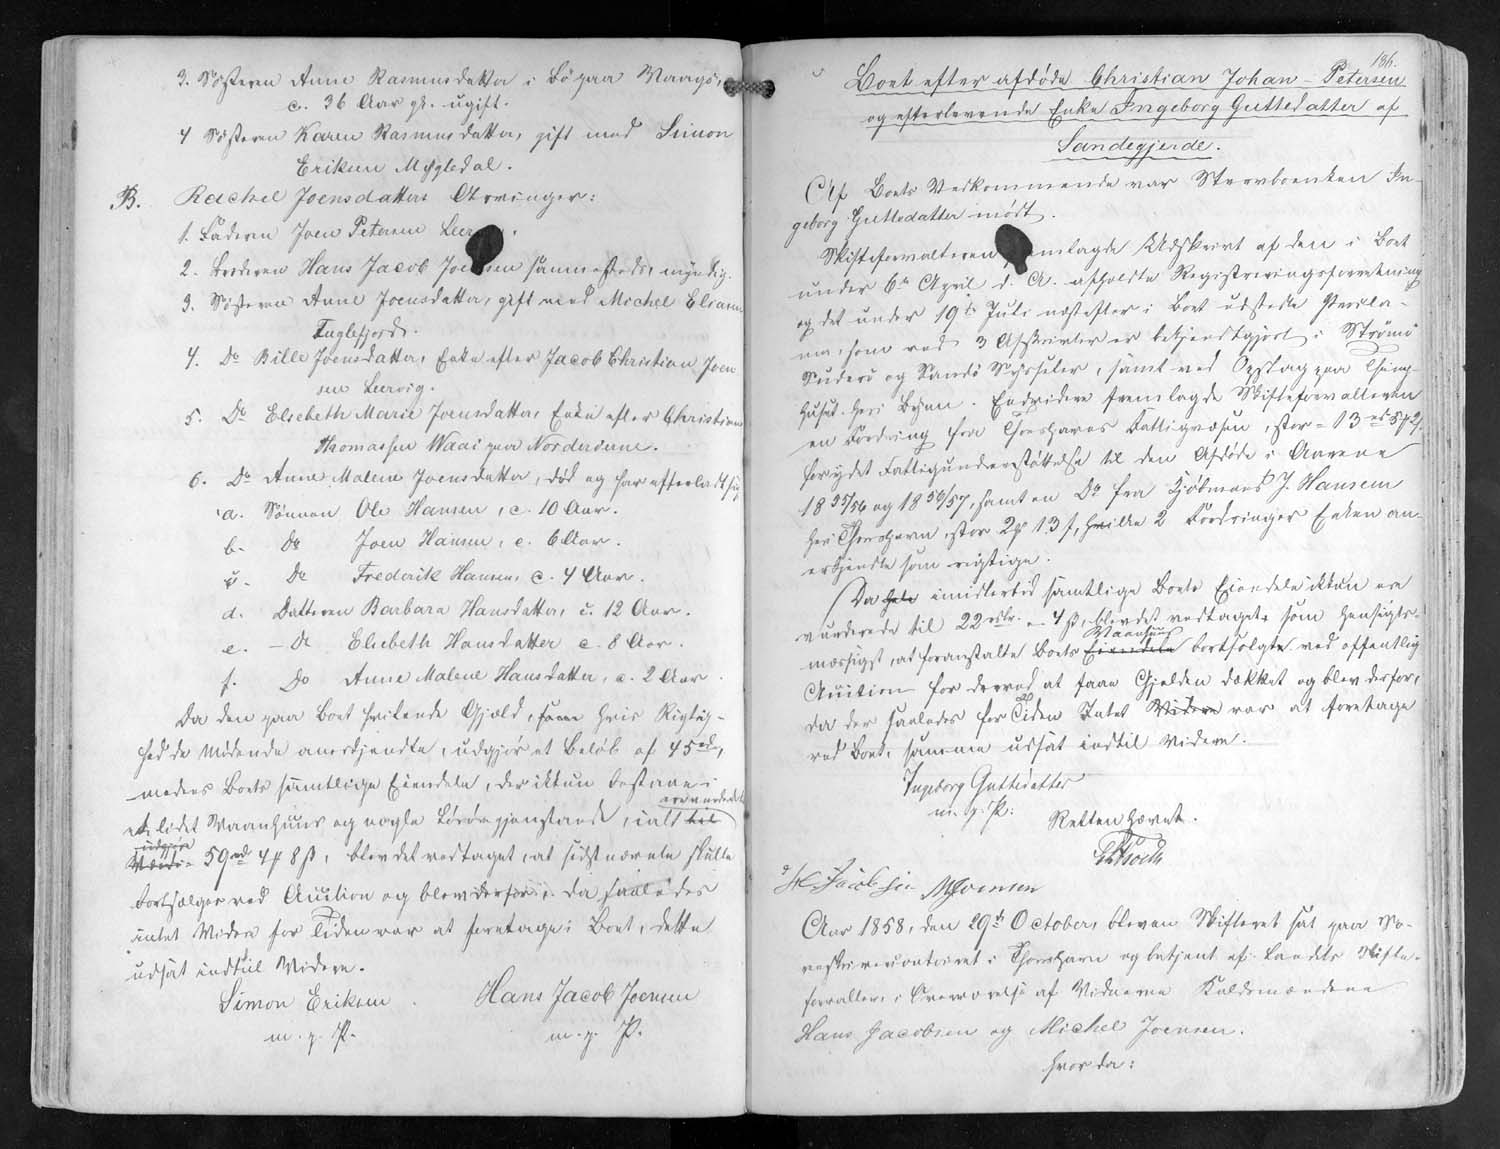 3. Søsteren Anne Rasmusdatter i Bø paa Waagø,
c. 36 Aar gl. ugift.
4 Søsteren Karen Rasmusdatter, gift med Simon
Eriksen Mygledal.
B. Rachel Joensdatters Arvinger:
1. Faderen Joen Petersen Leervig.
2. Broderen Hans Jacob Joensen sammesteds, myndig.
3. Søsteren Anne Joensdatter, gift med Michel Eliasen
Fuglefjord.
4. Do Bille Joensdatter, Enke efter Jacob Christian Joen
sen Leervig.
5. Do Elsebeth Marie Joensdatter, Enke efter Christian
Thomassen Waai paa Norderøerne.
6. Do Anne Malene Joensdatter, død og har efterladt sig
a. Sønnen Ole Hansen, c. 10 Aar.
b. Do Joen Hansen, c. 6 Aar.
c. Do Frederik Hansen, c. 4 Aar.
d. Datteren Barbara Hansdatter, c. 12 Aar.
e. - Do Elsebeth Hansdatter c. 8 Aar.
f. Do Anne Malene Hansdatter, c. 2 Aar.
Da den paa Boet hvilende Gjæld, hvis Rigtig-
hed de Mødende anerkjendte, udgjør et Beløb af 45 rd,
medens Boets samtlige Eiendele, der ikkun bestaae i
et lidet Vaanhuus og nogle Løsøregjenstande, ialt ere vurderede til
udgjøre 59 rd 4 ꝑ 8 ß, blev det vedtaget, at sidstnævnte skulle
bortsælges ved Auction og blev derfor, da saaledes
intet Videre for Tiden var at foretage i Boet, dette
udsat indtil Videre.
Simon Eriksen Hans Jacob Joensen
m. p. P. m. p. P.
186.
Boet efter afdøde Christian Johan Petersen
og efterlevende Enke Ingeborg Guttesdatter af
Sandegjerde.
Af Boets Vedkommende var Stervboenken In-
geborg Guttesdatter mødt.
Skifteforvalteren fremlagde Udskrivt af den i Boet
under 6te April d. A. afholdte Registreringsforretning
og det under 19de Juli næstefter i Boet udstedte Procla-
ma, som ved 3 Afskrivter er bekjendtgjort i Strømø
Suderø og Sandø Sysseler, samt ved Opslag paa Thing-
huset her i Byen. Endvidere fremlagde Skifteforvalteren
en Fordring fra Thorshavns Fattigvæsen, stor 13 rd 5 ꝑ 2 ß
for ydet Fattigunderstøttelse til den Afdøde i Aarene
1855/56 og 1856/57, samt en Do fra Kjøbmand J. Hansen
her i Thorshavn, stor 2 ꝑ 13 ß, hvilke 2 Fordringer Enken an-
erkjendte som rigtige.
Da imidlertid samtlige Boets Eiendele ikkun ere
vurderede til 22 rdlr. - 4 ß, blev det vedtaget som hensigts-
mæssigst, at foranstalte Boets Vaanhuus Eiendele bortsolgte ved offentlig
Auction for derved at faae Gjelden dækket og blev derfor,
da der saaledes for Tiden Intet Videre var at foretage
ved Boet, samme udsat indtil Videre.
Ingeborg Guttesdatter
m. p. P:
Retten hævet.
H. Jacobsen MJoensen
Aar 1858, den 29de October, blev en Skifteret sat paa So-
renskrivercontoiret i Thorshavn og betjent af Landets Skifte-
forvalter, i Overværelse af Vidnerne Kaldsmændene
Hans Jacobsen og Michel Joensen.
hvor da: